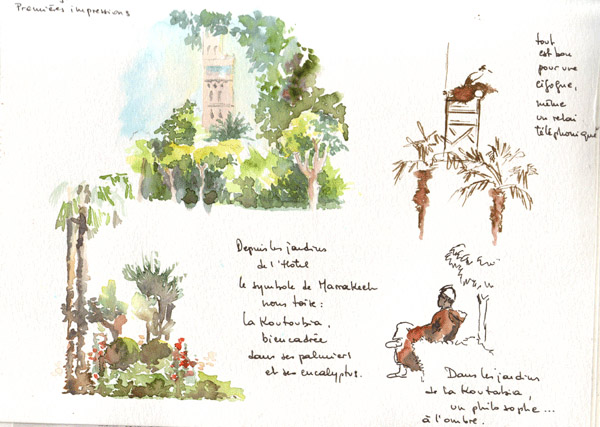 Premières impressions
tout
est bon
pour une
cigogne,
même
un relai
téléphonique
Depuis les jardins
de l'Hôtel
le symbole de Marrakech
nous toise :
la Koutoubia,
bien cadrée
dans ses palmiers
et ses eucalyptus.
Dans les jardins
de la Koutoubia,
un philosophe...
à l'ombre.